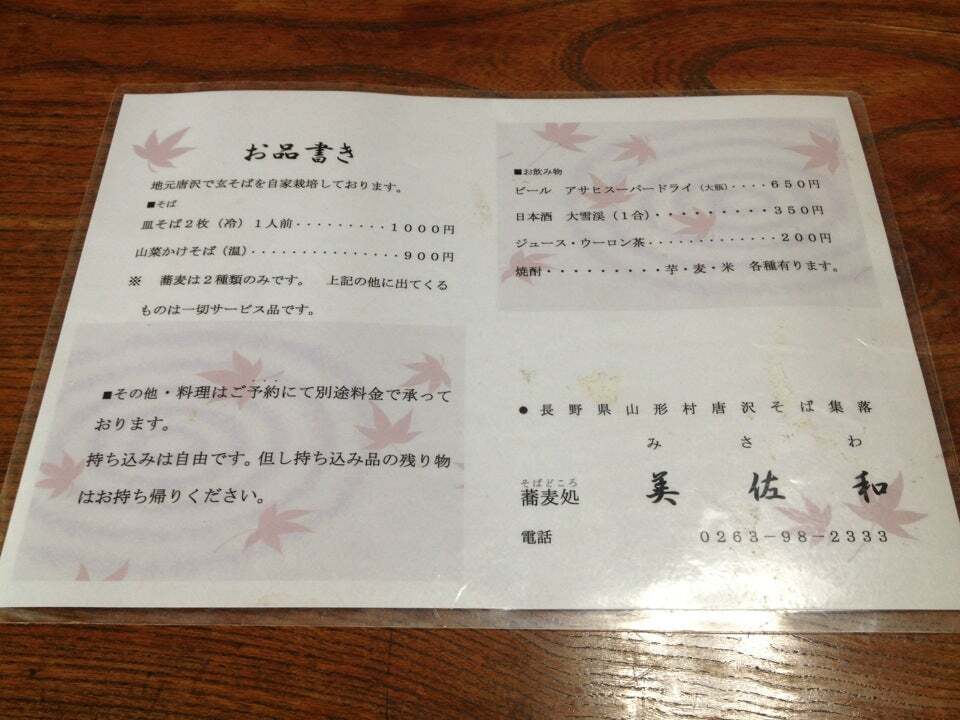 お品書き
地元唐沢で玄そばを自家栽培しております。
■そば
皿そば２枚（冷）１人前・・・・・・・・・１０００円
山菜かけそば（温）・・・・・・・・・・・・・・・９００円
※　蕎麦は２種類のみです。　上記の他に出てくる
ものは一切サービス品です。
■その他・料理はご予約にて別途料金で承って
おります。
持ち込みは自由です。但し持ち込み品の残り物
はお持ち帰りください。
■お飲み物
ビール　アサヒスーパードライ（大瓶）・・・・６５０円
日本酒　大雪渓（１合）・・・・・・・・・３５０円
ジュース・ウーロン茶・・・・・・・・・・・・・２００円
焼酎・・・・・・・・・芋・麦・米　各種有ります。
●長野県山形村唐沢そば集落
みさわ
そばどころ
蕎麦処　美佐和
電話　０２６３－９８－２３３３